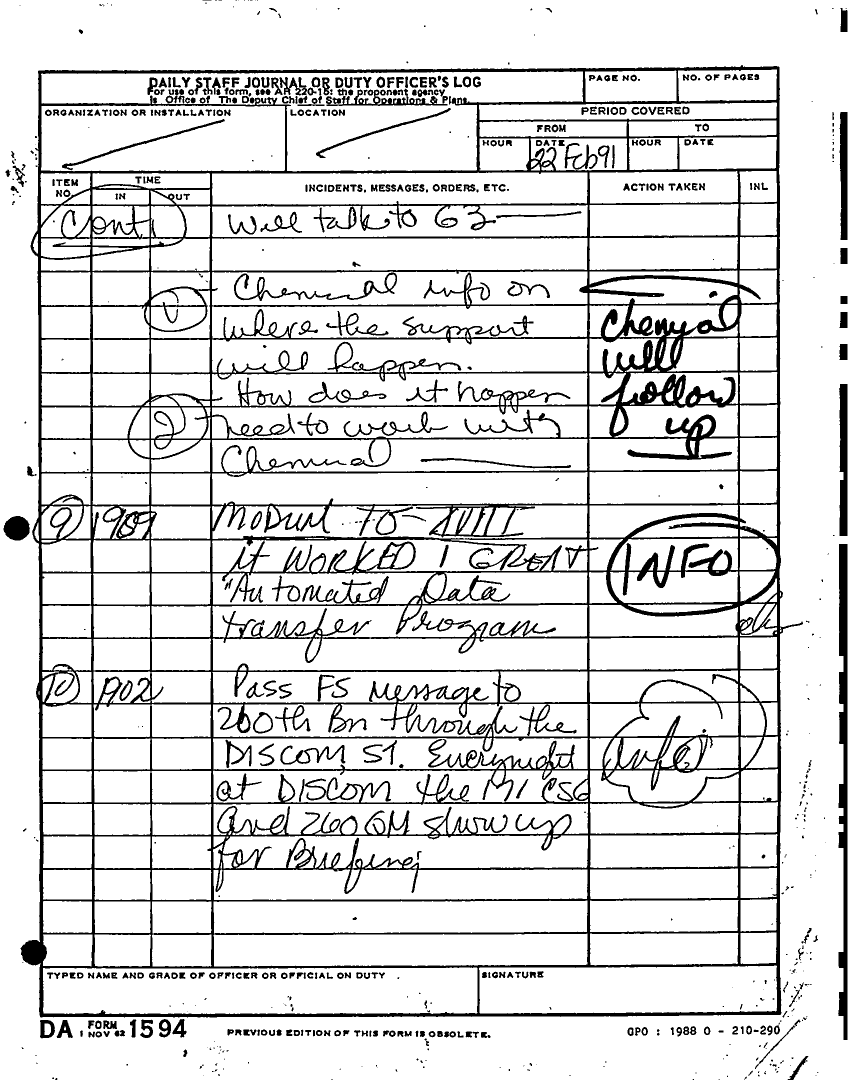 DAILY STAFF JOURNAL OR DUTY OFFICER'S LOG
For use of this form, see AR 220-15; the proponent agency
is Office of The Deputy Chief of Staff for Operations & Plans.
PAGE NO.
NO. OF PAGES
ORGANIZATION OR INSTALLATION
LOCATION
PERIOD COVERED
FROM
TO
HOUR
DATE
HOUR
DATE
22 Feb 91
ITEM NO.
TIME
IN
OUT
INCIDENTS, MESSAGES, ORDERS, ETC.
ACTION TAKEN
INL
Cont.
Will talk to G3
1
- Chemical info on
where the support
will happen.
2
- How does it happen
need to work with
Chemical
Chemical
will
follow
up
9 1909
MODUM TO XVIII
it WORKED! GREAT
"Automated Data
transfer Program
INFO
10 1902
Pass FS message to
260th Bn through the
DISCOM, ST. Everynight
at DISCOM the 171 CSG
and 260 QM show up
for Briefing
info
TYPED NAME AND GRADE OF OFFICER OR OFFICIAL ON DUTY
SIGNATURE
DA FORM 1 NOV 62 1594
PREVIOUS EDITION OF THIS FORM IS OBSOLETE.
GPO : 1988 O - 210-290